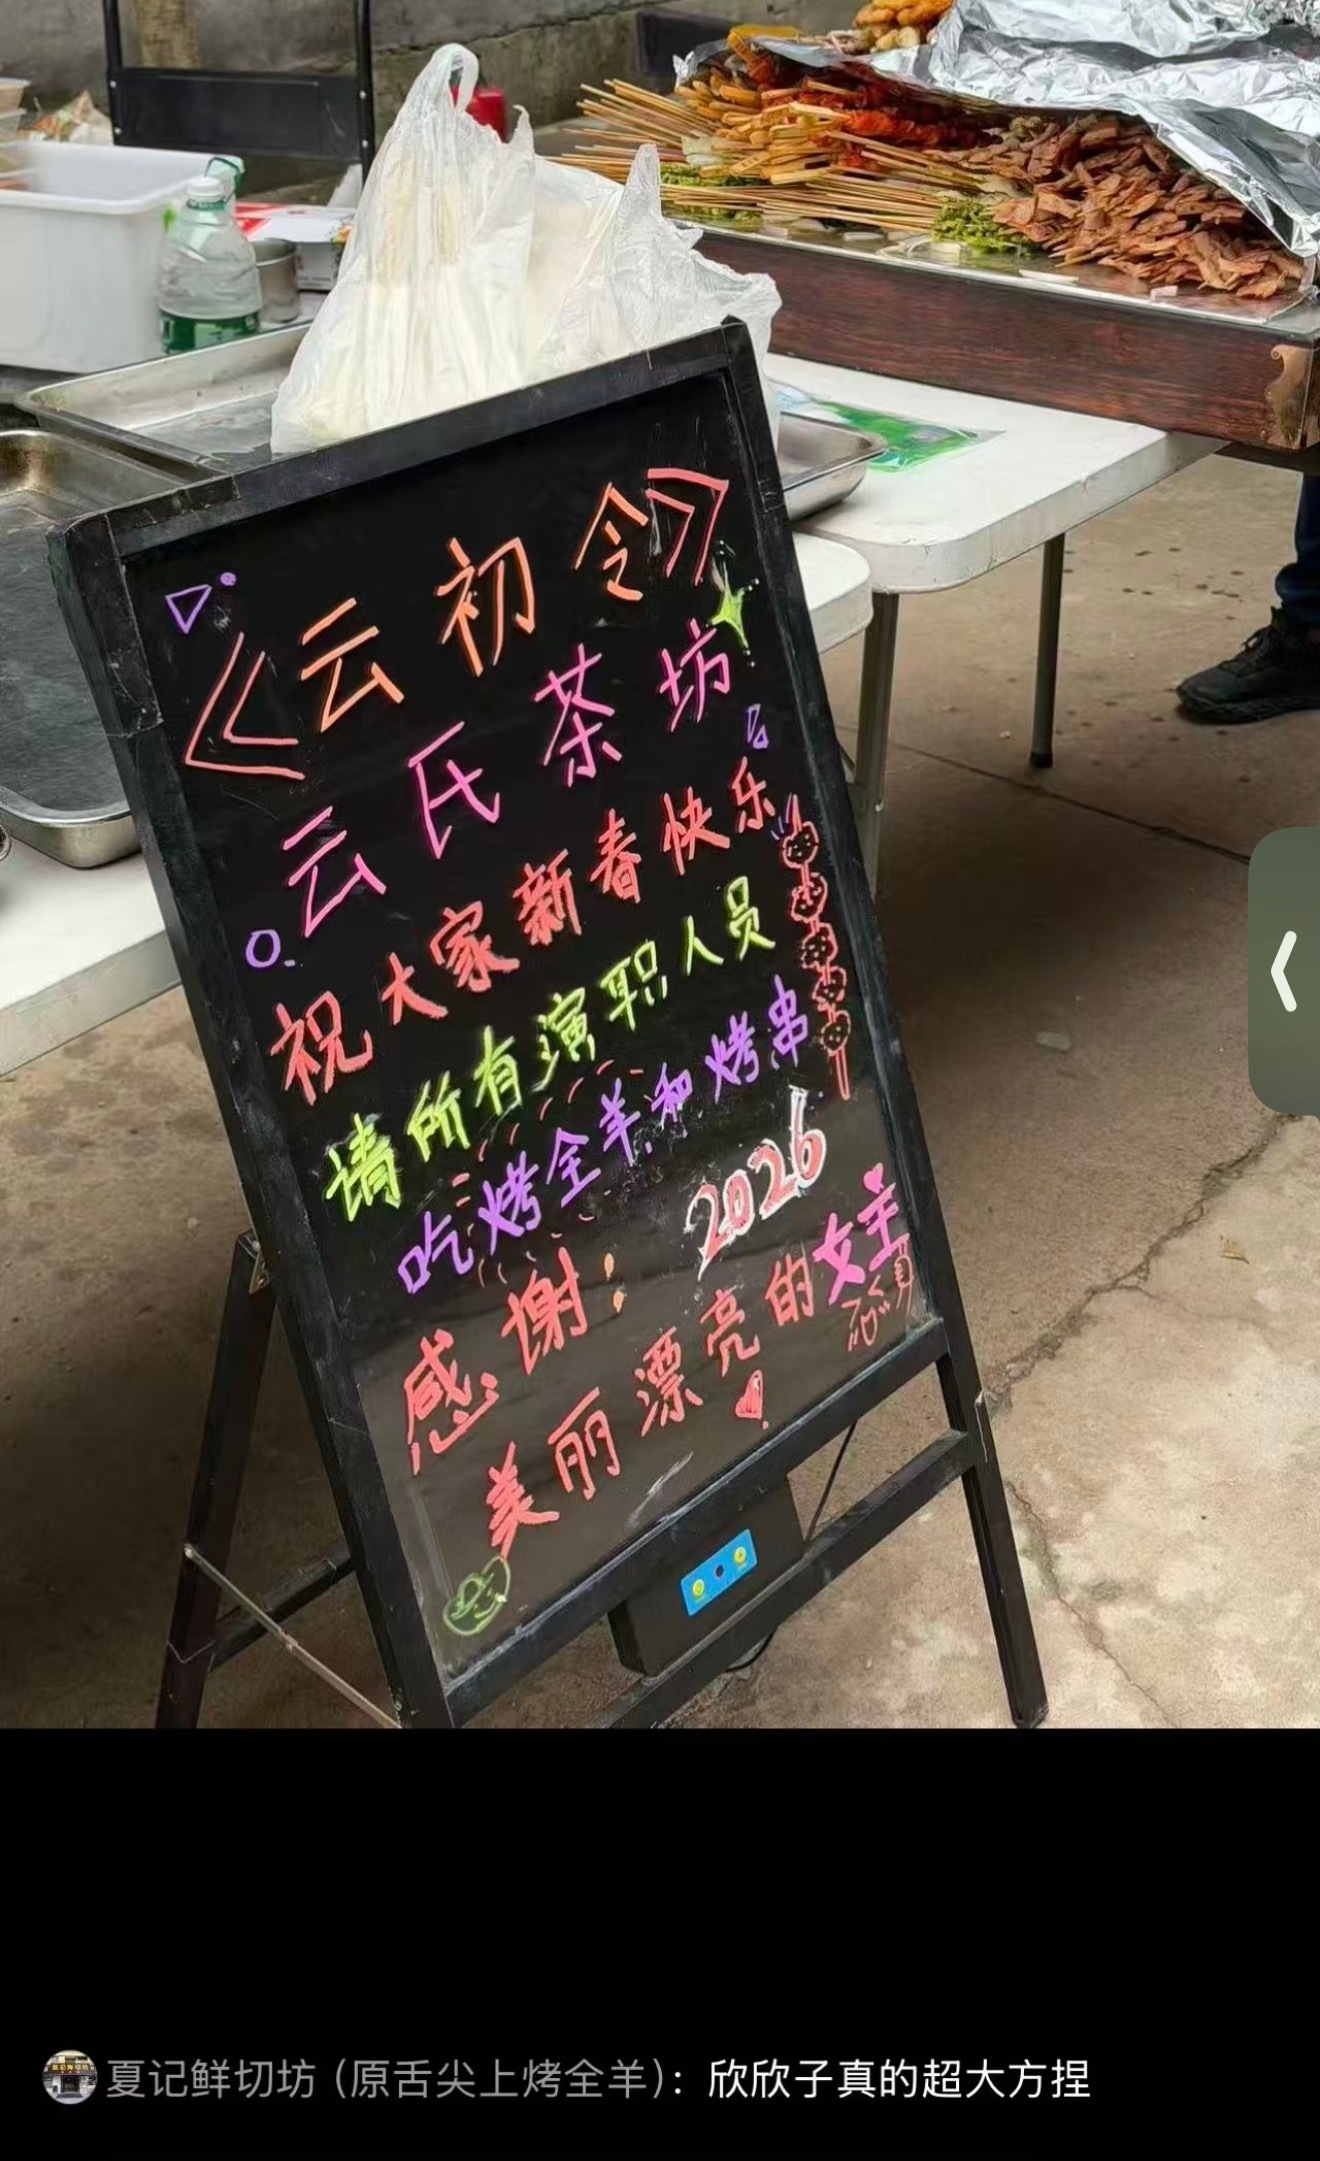 《云初令》
云氏茶坊
祝大家新春快乐
请所有演职人员
吃烤全羊和烤串
感谢: 2026
美丽漂亮的女主
夏记鲜切坊 (原舌尖上烤全羊): 欣欣子真的超大方捏